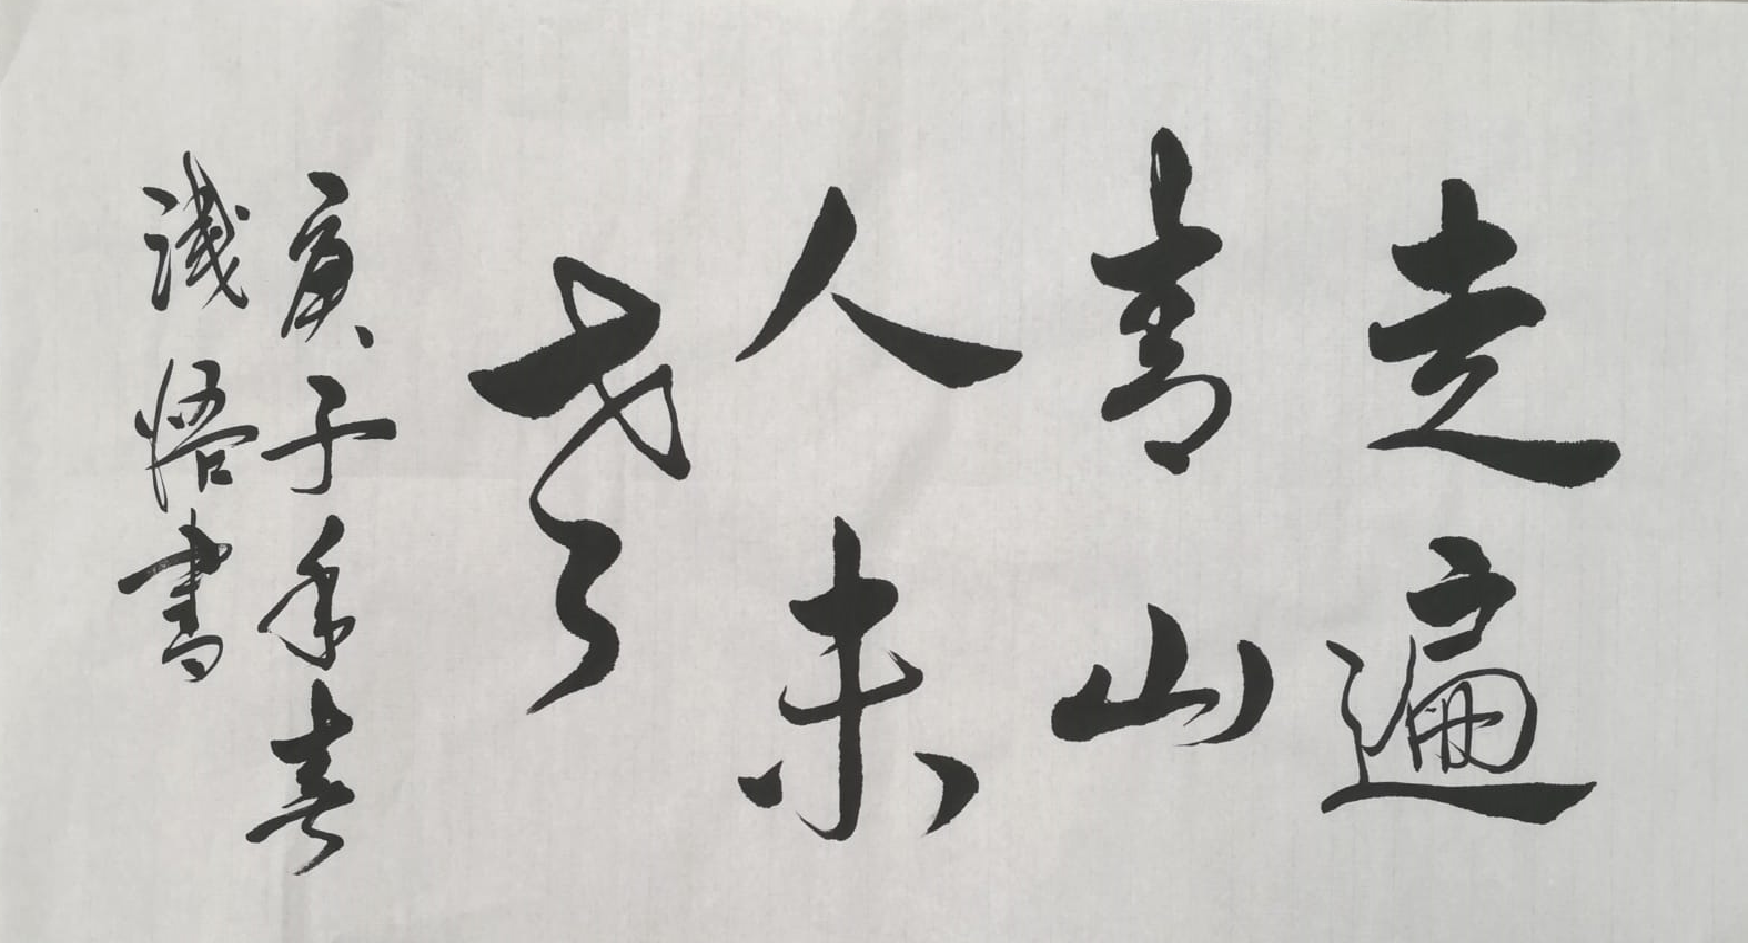 走遍
青山
人未
老
庚子年春
浅悟書